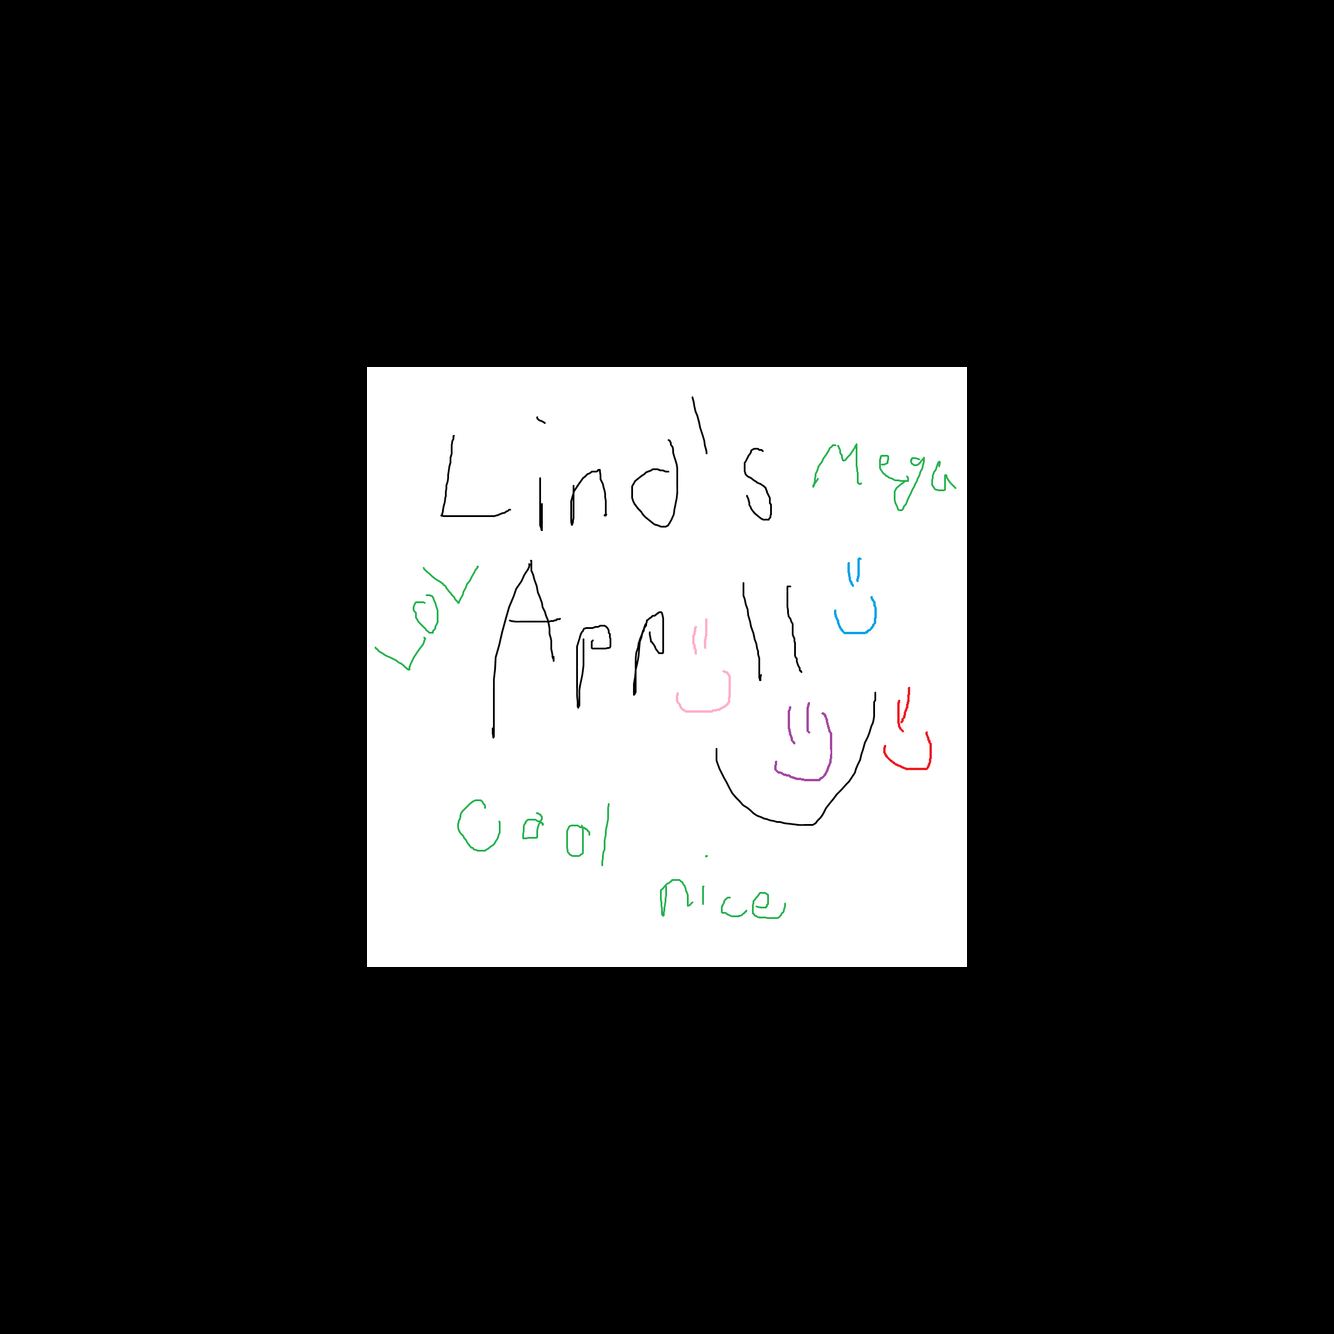 Lind's
Mega
LOL
App
Cool
nice